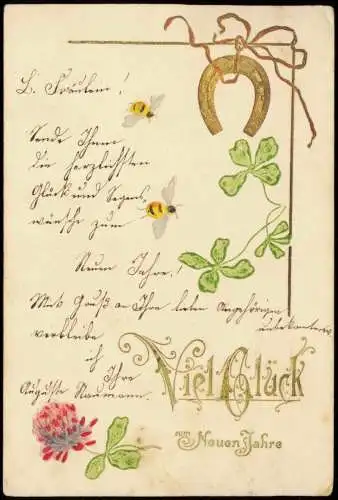 L. Fräulein!
Sende Ihnen
die herzlichsten
Glück und Segens,
wünsche zum
Neuen Jahre!
Mit Gruß an Ihre lieben Angehörigen
unbekannterweise
verbleibe
ich
Ihre
Auguste Naumann.
Viel Glück
zum Neuen Jahre